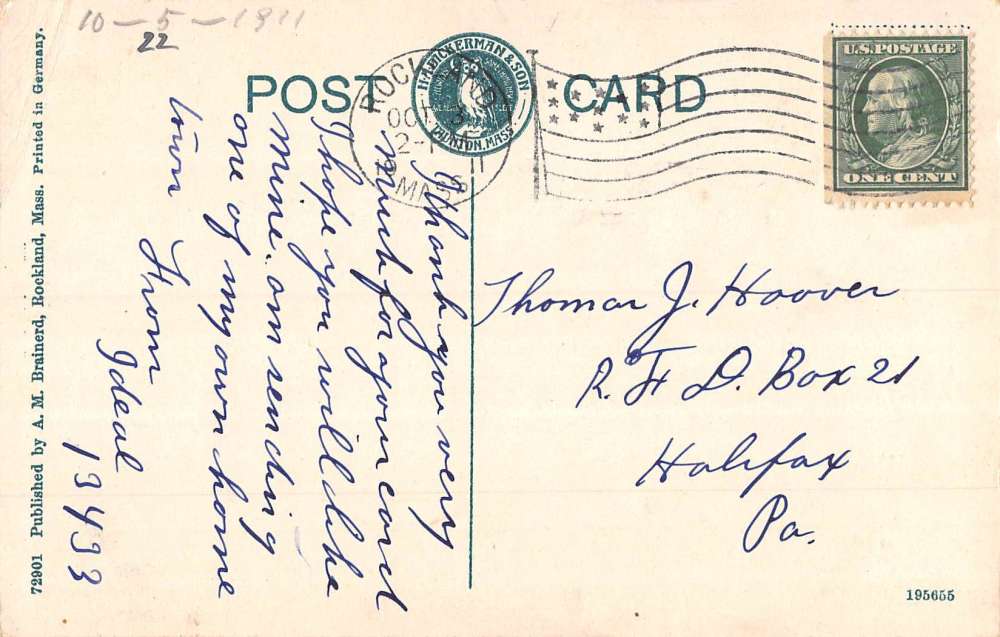 10-5-1911
22
POST CARD
H.A. DICKERMAN & SON
TAUNTON, MASS.
ROCKLAND
OCT 3
2-
MASS
U.S. POSTAGE
ONE CENT
Thank you very
much for your card
I hope you will like
mine. am sending
one of my own home
town
From
Ideal
13433
Thomas J. Hoover
R. F. D. Box 21
Halifax
Pa.
72901 Published by A. M. Brainerd, Rockland, Mass. Printed in Germany.
195655